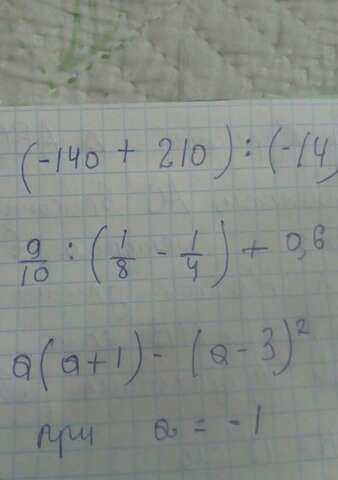 (-140 + 210) : (-14)
9/10 : (1/8 - 1/4) + 0,6
a(a+1) - (a-3)²
при a = -1